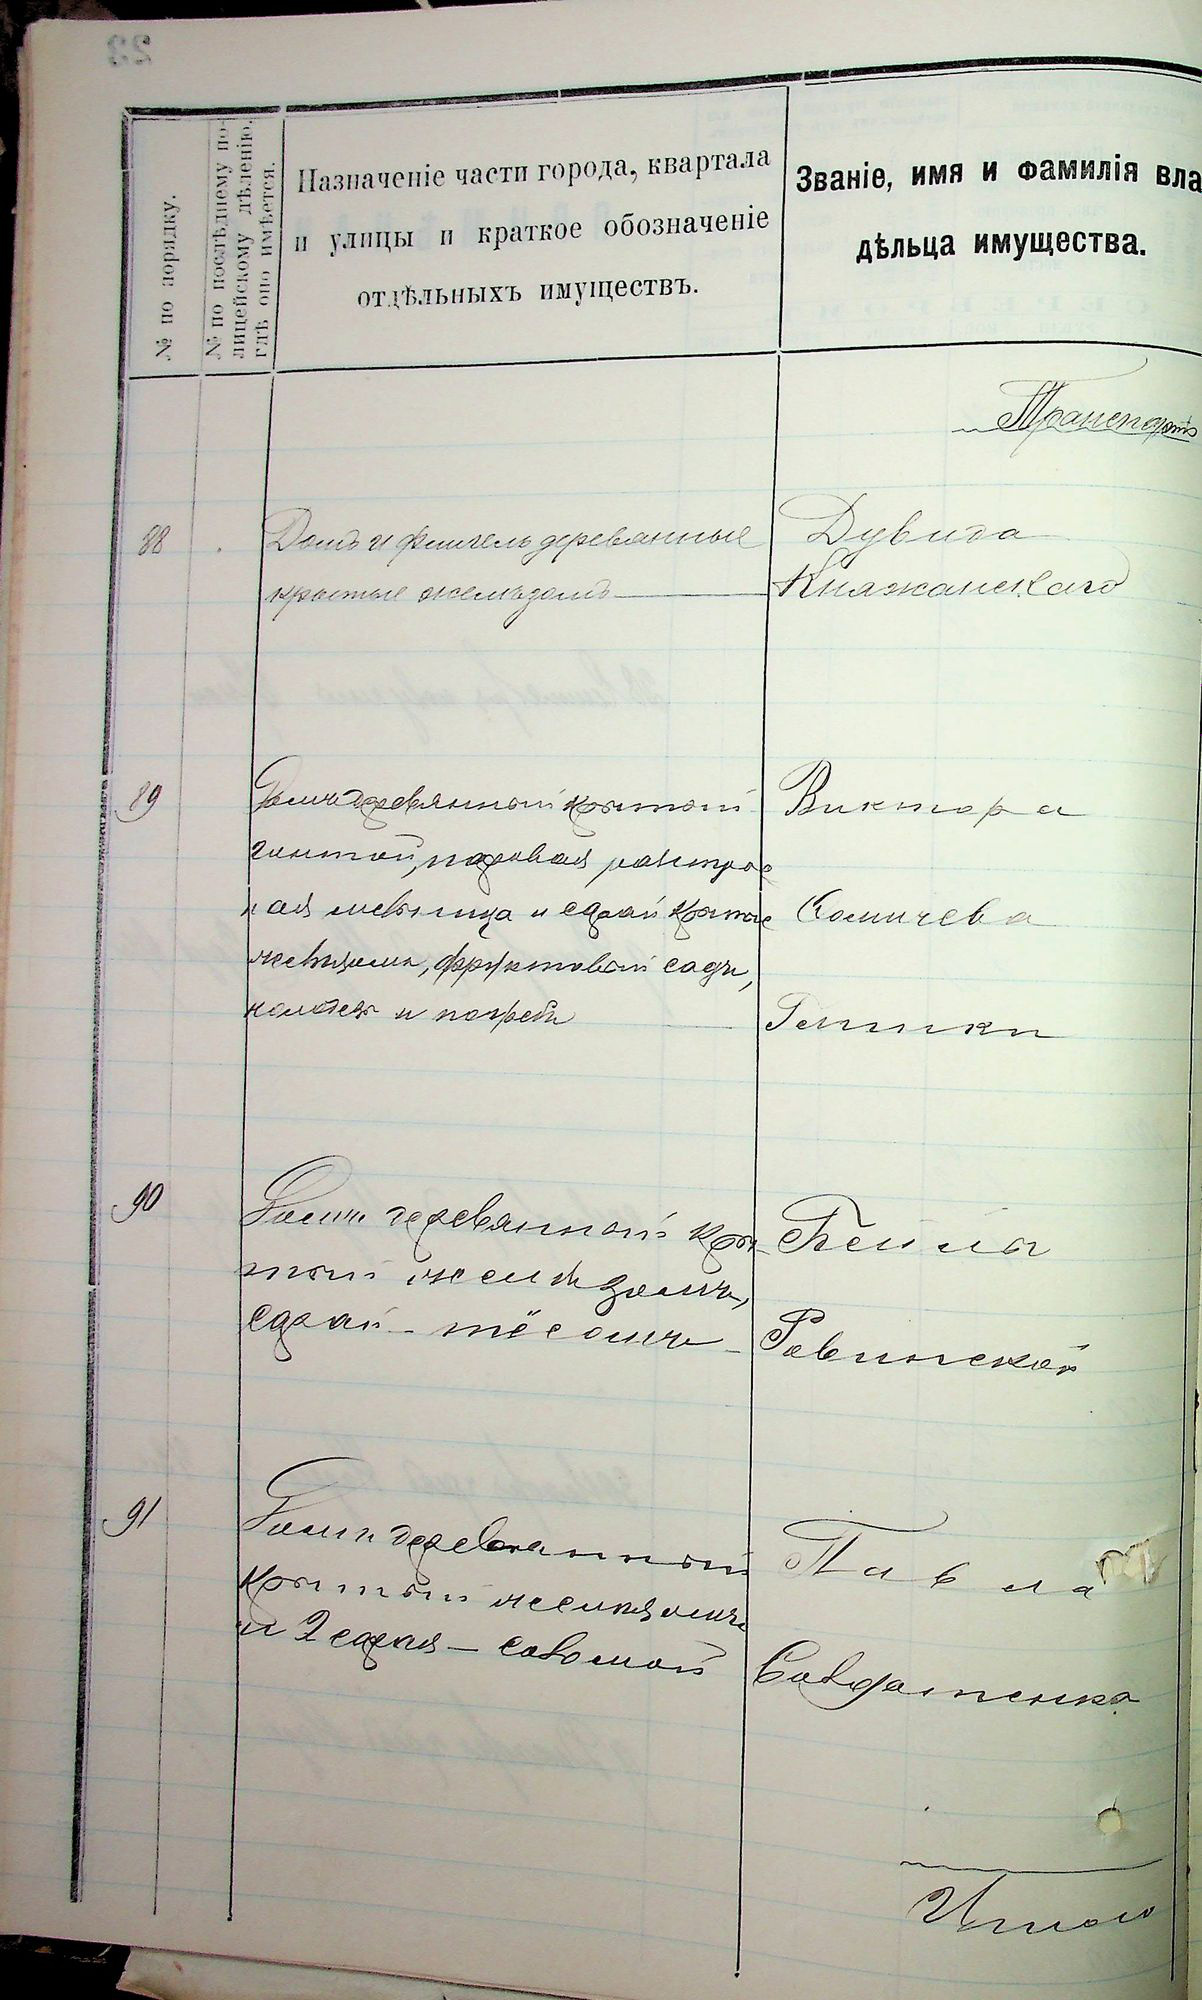 № по порядку.
№ по послѣднему по-
лицейскому дѣленію,
гдѣ оно имѣется.
Назначеніе части города, квартала
и улицы и краткое обозначеніе
отдѣльныхъ имуществъ.
Званіе, имя и фамилія вла
дѣльца имущества.
Транспортъ
88
Домъ и флигель деревянные
крытые желѣзомъ
Дувида
Княжанскаго
89
Домъ деревянный крытый
гонтой, паровая
мельница и сарай крытые
желѣзомъ, фруктовый садъ,
колодезь и погребъ
Виктора
90
Домъ деревянный кры-
тый желѣзомъ,
сарай - тёсомъ
Бейлы
Равинской
91
Домъ деревянный
крытый желѣзомъ
и 2 сарая - соломой
Павла
Солдатенка
Итого